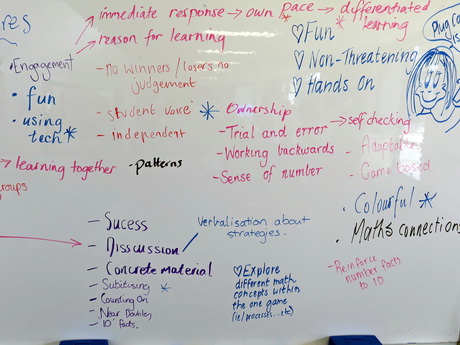 res
immediate response → own pace → differentiated
learning
reason for learning
• Engagement
• fun
• using
tech
- no winners / losers no
judgement
- student voice
- independent
→ learning together
groups
• patterns
♡ Fun
♡ Non-Threatening
♡ Hands On
Ownership
- Trial and error
- Working backwards
- Sense of number
→ self checking
- Adaptable
- Game based
• Colourful
• Maths connections
- Reinforce
number facts
to 10
- Sucess
- Disscussion
- Concrete material
- Subitising
- Counting On
- Near Doubles
- 10 facts.
Verbalisation about
strategies.
♡ Explore
different math
concepts within
the one game
(ie/processes...etc)
is